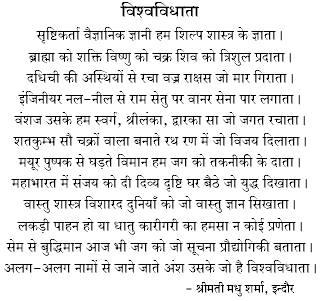 विश्वविधाता
सृष्टिकर्ता वैज्ञानिक ज्ञानी हम शिल्प शास्त्र के ज्ञाता।
ब्राह्मा को शक्ति विष्णु को चक्र शिव को त्रिशुल प्रदाता।
दधिची की अस्थियों से रचा वज्र राक्षस जो मार गिराता।
इंजिनीयर नल-नील से राम सेतु पर वानर सेना पार लगाता।
वंशज उसके हम स्वर्ग, श्रीलंका, द्वारका सा जो जगत रचाता।
शतकुम्भ सौ चक्रों वाला बनाते रथ रण में जो विजय दिलाता।
मयूर पुष्पक से घड़ते विमान हम जग को तकनीकी के दाता।
महाभारत में संजय को दी दिव्य दृष्टि घर बैठे जो युद्ध दिखाता।
वास्तु शास्त्र विशारद दुनियाँ को जो वास्तु ज्ञान सिखाता।
लकड़ी पाहन हो या धातु कारीगरी का हमसा न कोई प्रणेता।
सेम से बुद्धिमान आज भी जग को जो सूचना प्रौद्योगिकी बताता।
अलग-अलग नामों से जाने जाते अंश उसके जो है विश्वविधाता।
- श्रीमती मधु शर्मा, इन्दौर